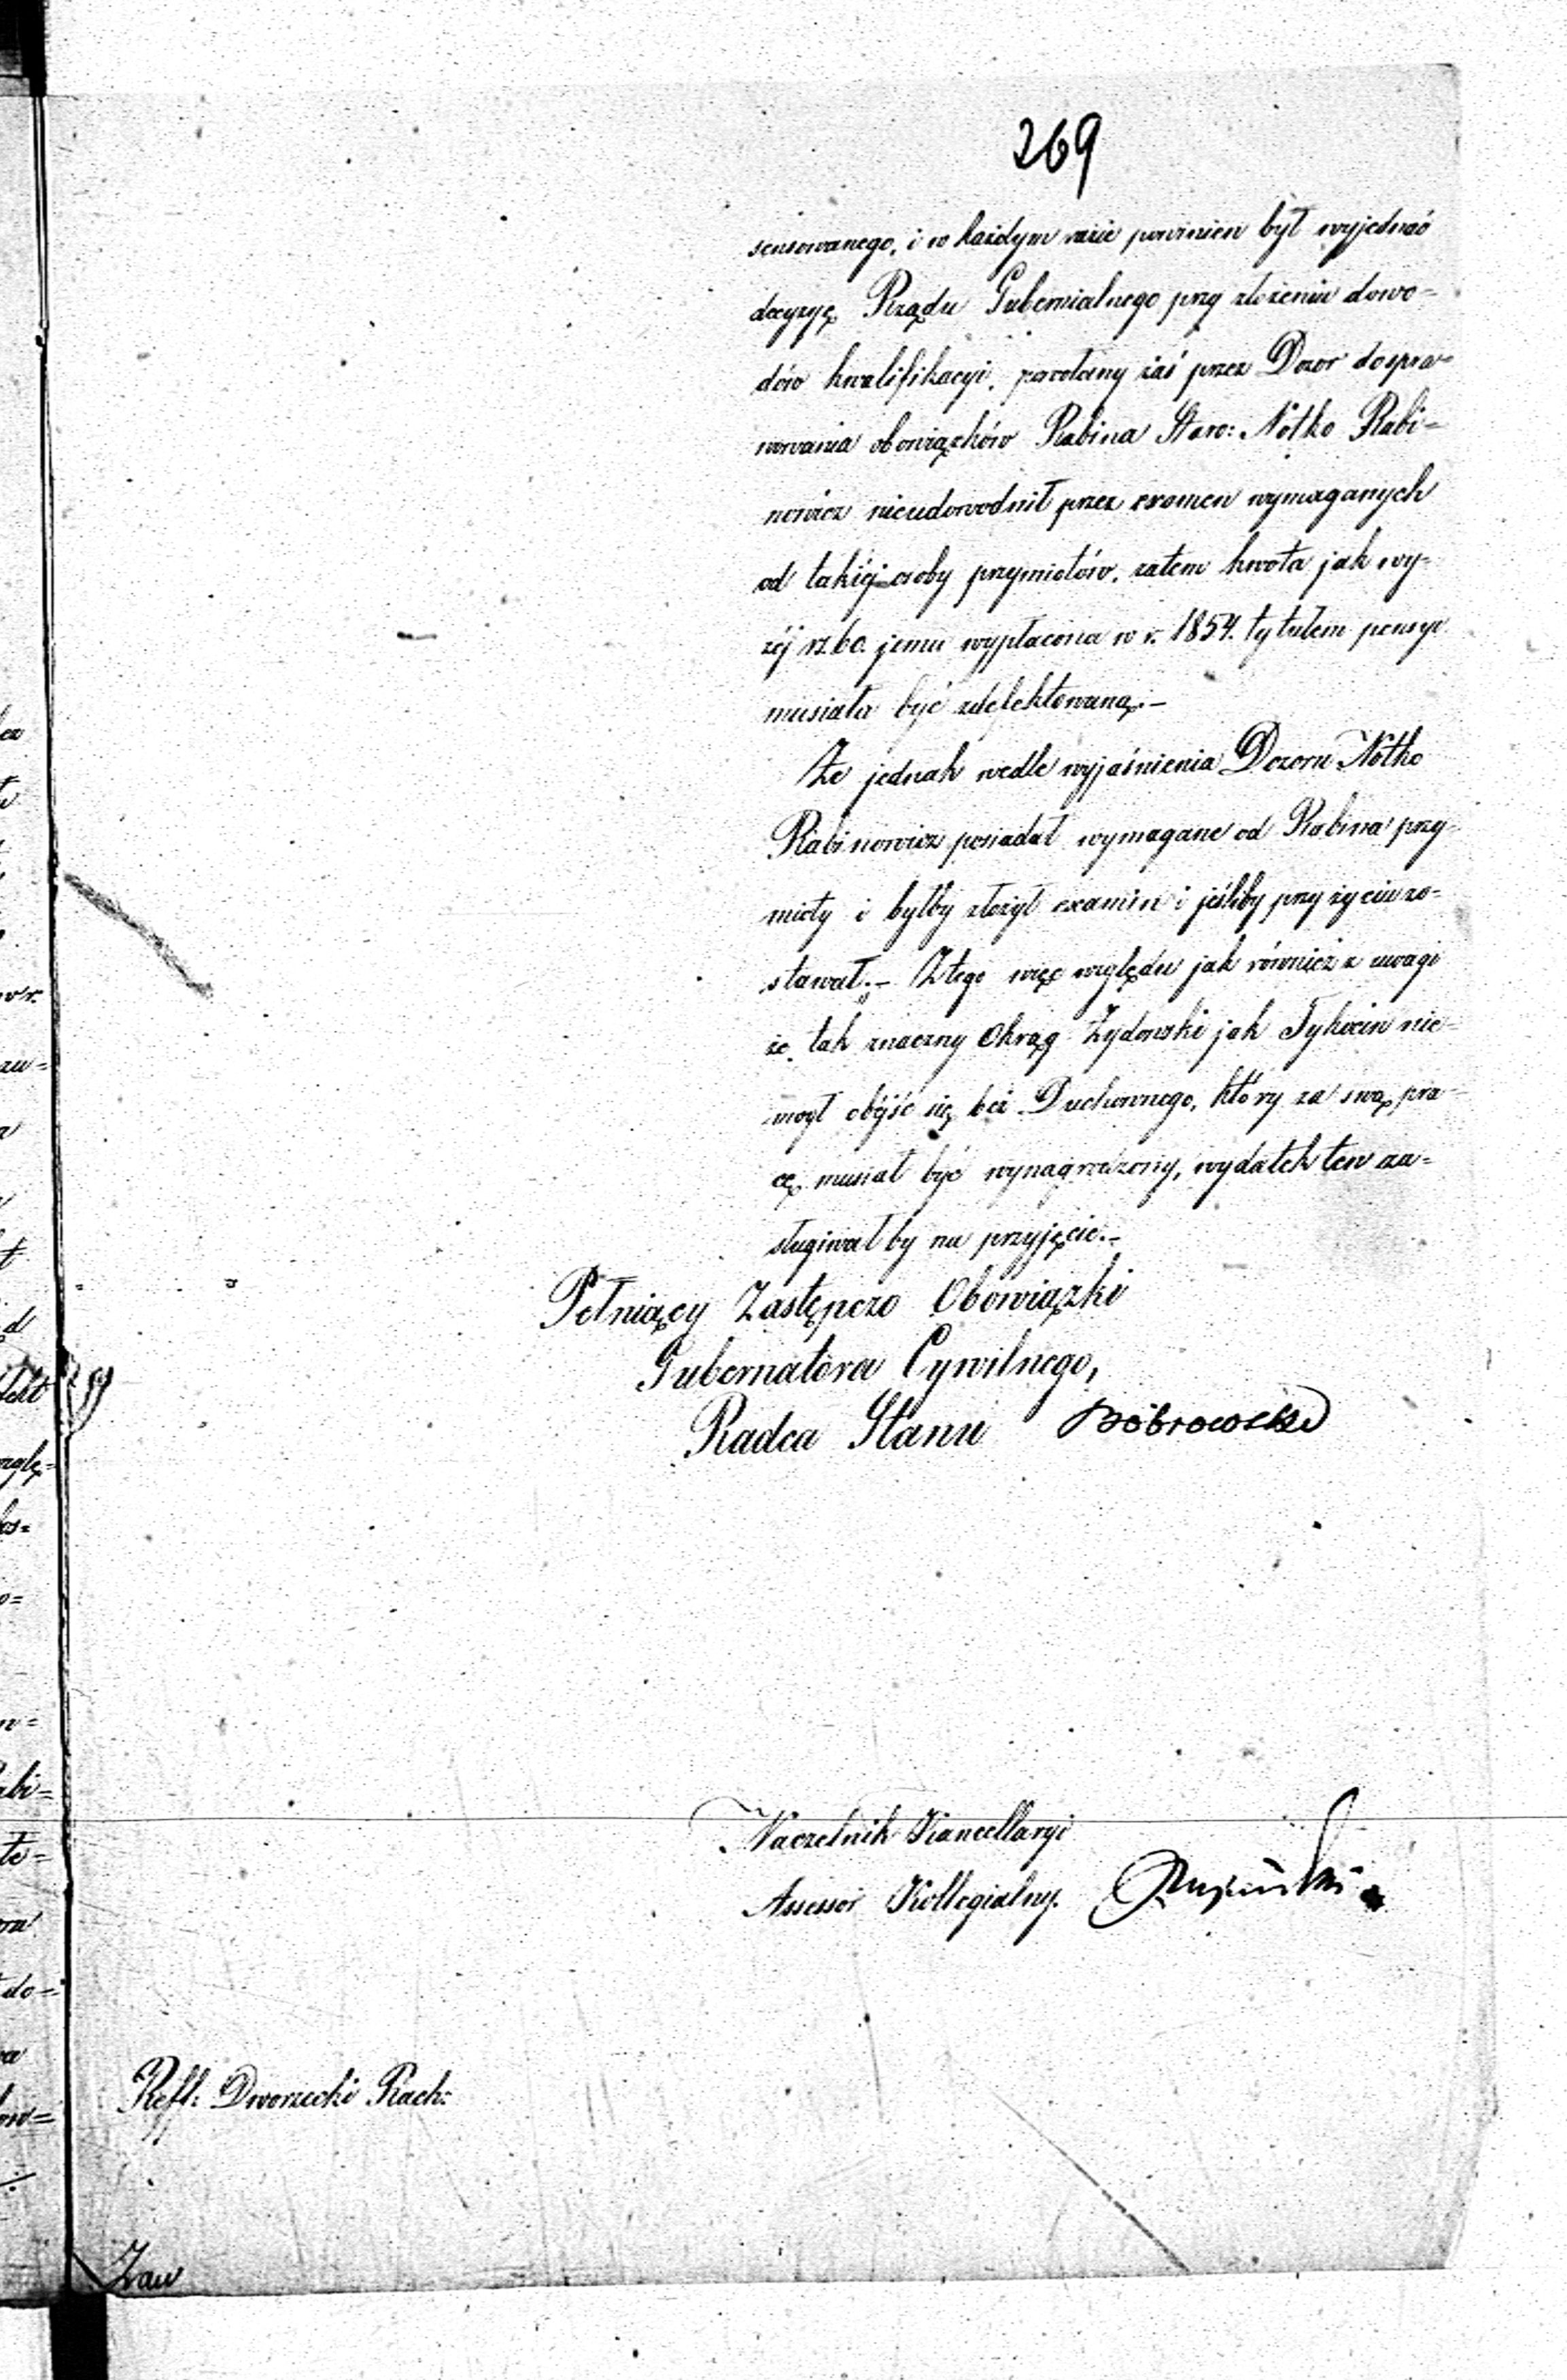 269
sensowanego, i w każdym razie powinien był wyjednać
decyzyę Rządu Gubernialnego przy złożeniu dowo=
dów kwalifikacyi, powołany zaś przez Dozor do spra=
wowania obowiązków Rabina Staro: Notko Rabi=
nowicz nieudowodnił przez examen wymaganych
od takiéj osoby przymiotów, zatem kwota jak wy=
żéj rs. 60. jemu wypłacona w r. 1854. tytułem pensyi
musiała być zdefektowaną.–
Że jednak wedle wyjaśnienia Dozoru Notko
Rabinowicz posiadał wymagane od Rabina przy=
mioty i byłby złożył examin i jeśliby przy życiu zo=
stawał.– Z tego więc względu jak również z uwagi
że tak znaczny Okrąg Żydowski jak Tykocin nie=
mogł obyjść się bez Duchownego, który za swą pra=
cę musiał być wynagrodzony, wydatek ten za=
sługiwał by na przyjęcie.–
Pełniący Zastępczo Obowiązki
Gubernatora Cywilnego,
Radca Stanu Dobrowolski
Naczelnik Kancellaryi
Assessor Kollegialny.
Reft: Dworzecki Rach:
Zaw